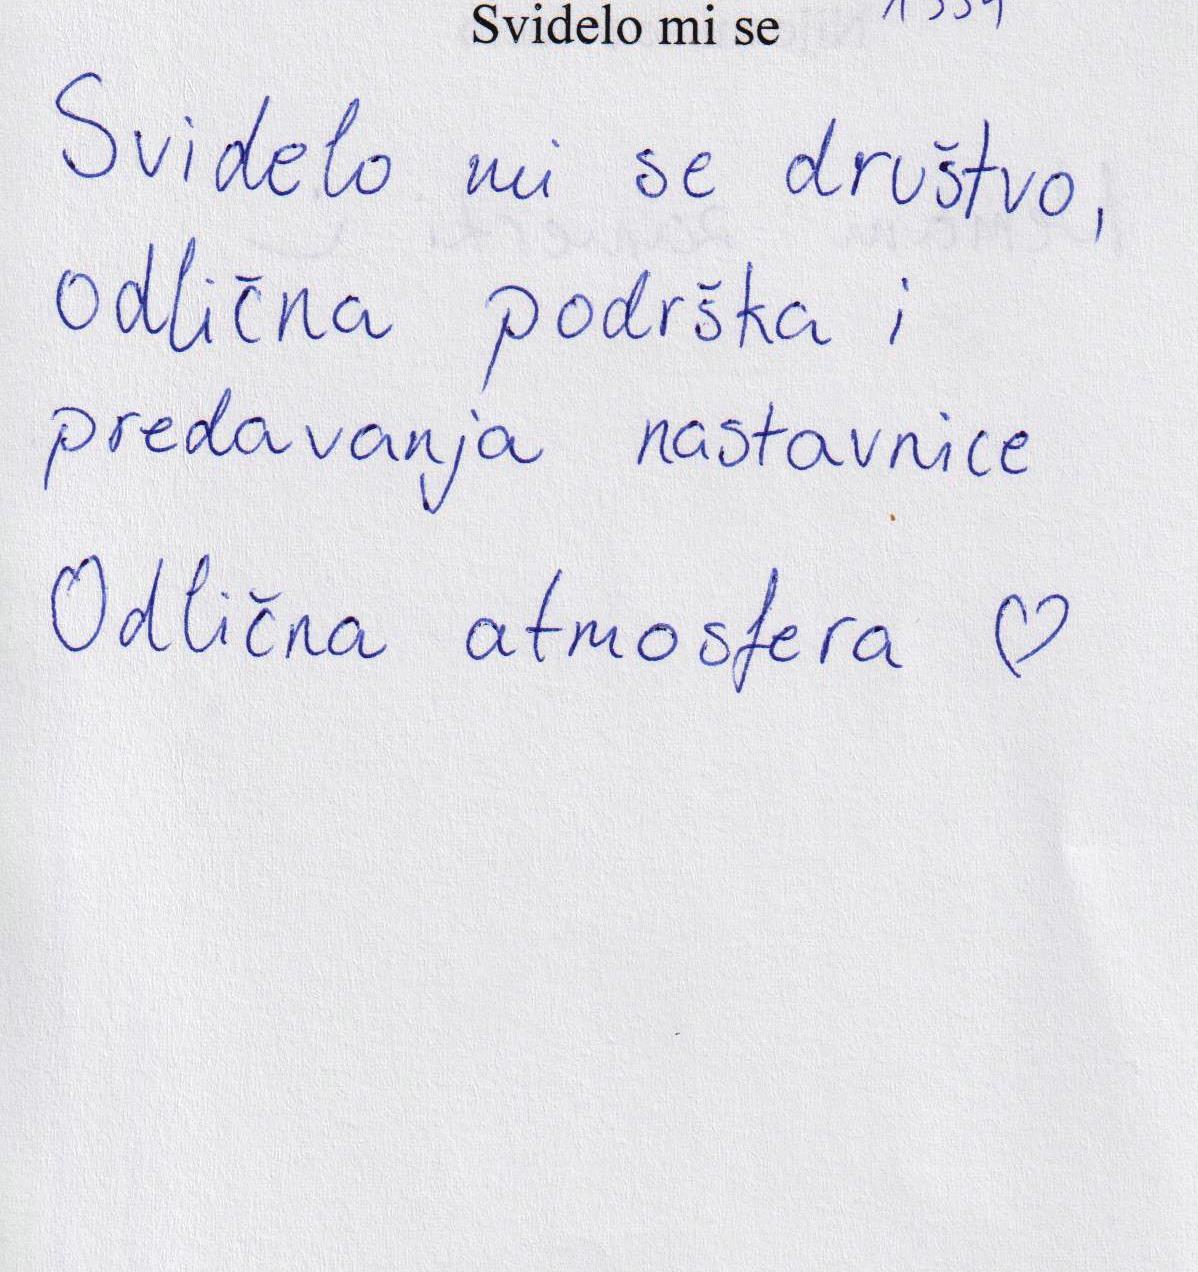 Svidelo mi se
Svidelo mi se društvo,
odlična podrška i
predavanja nastavnice
Odlična atmosfera ♡